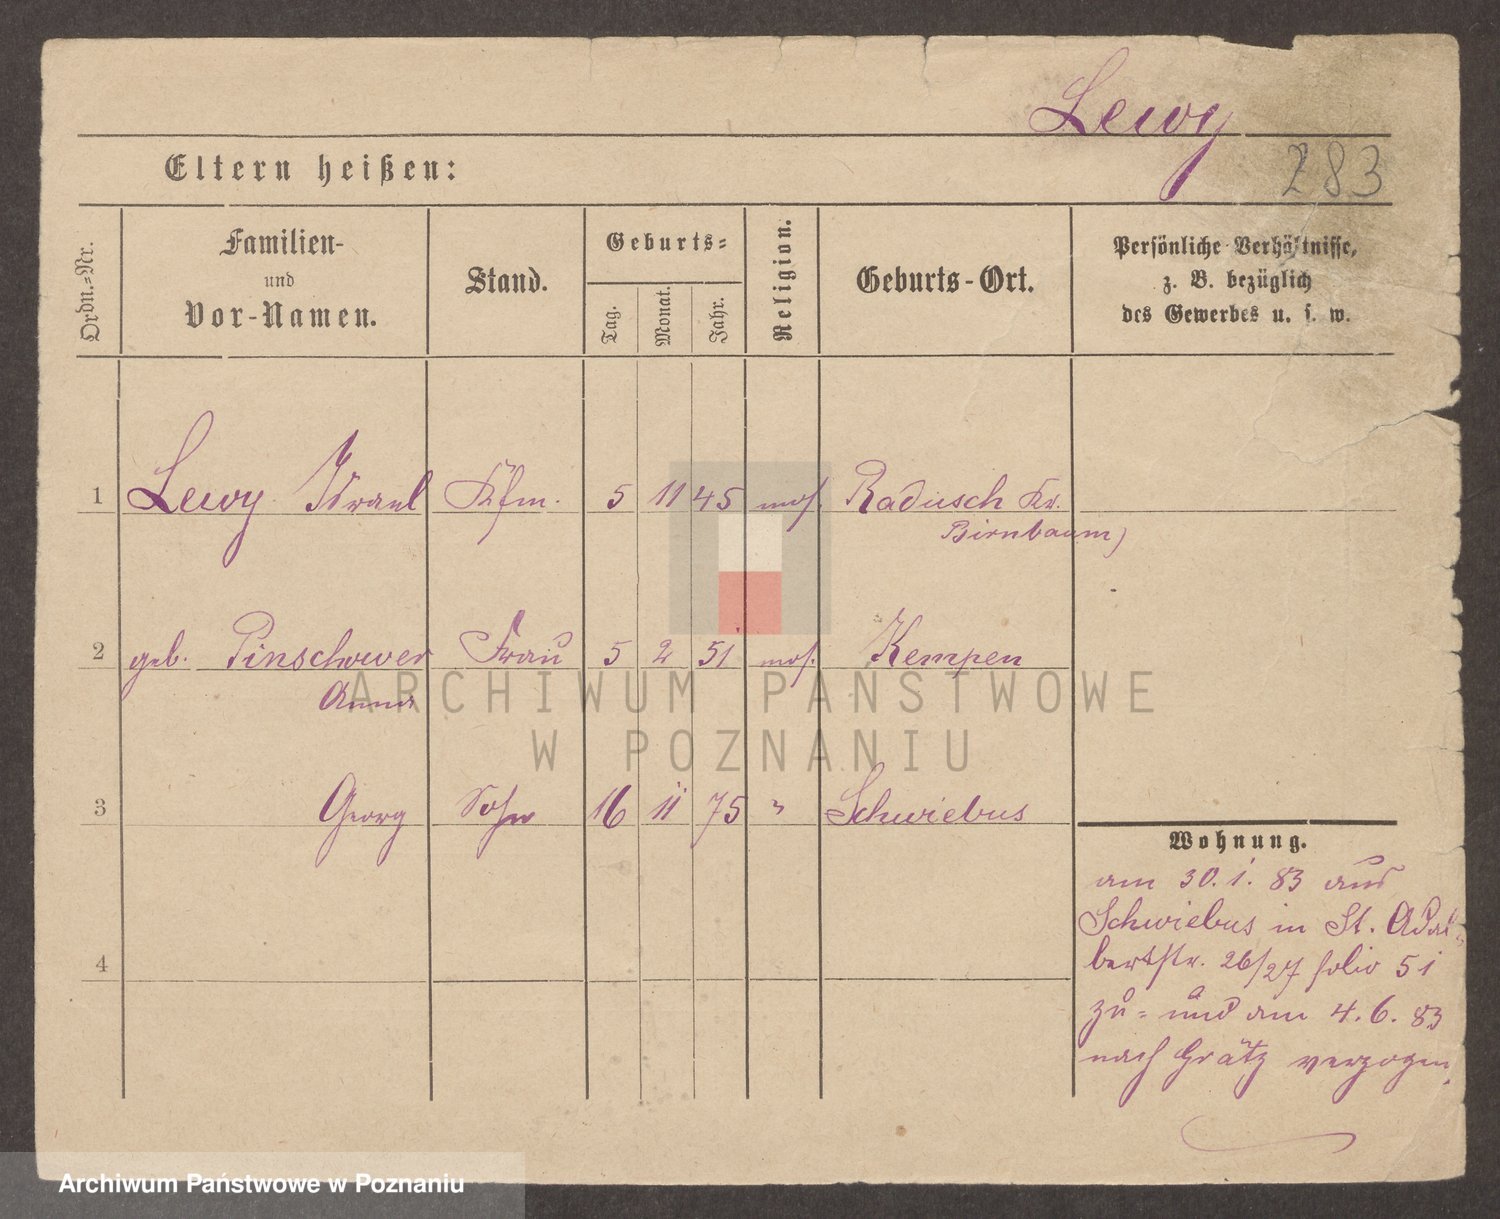 Lewy
283
Eltern heißen:
Ordn.-Nr.
Familien-
und
Vor-Namen.
Stand.
Geburts-
Tag.
Monat.
Jahr.
Religion.
Geburts-Ort.
Persönliche Verhältnisse,
z. B. bezüglich
des Gewerbes u. s. w.
1 Lewy Israel Kfm. 5 11 45 mos. Radusch Kr.
Birnbaum)
2 geb. Pinschower Frau 5 2 51 mos. Kempen
Anna
3 Georg Sohn 16 11 75 " Schwiebus
4
Wohnung.
am 30.1.83 aus
Schwiebus in St. Adal-
bertstr. 26/27 folio 51
zu- und am 4.6.83
nach Grätz verzogen.
ARCHIWUM PAŃSTWOWE
W POZNANIU
Archiwum Państwowe w Poznaniu